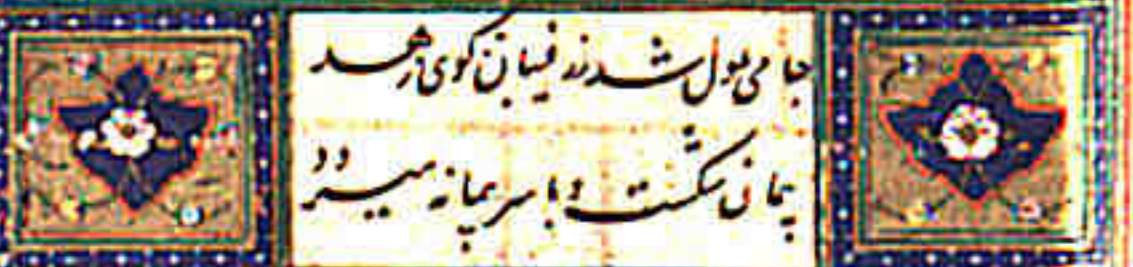 جامی ملول شد ز رفیقان کوی زهد
پیمان شکست و با سر پیمانه میرود